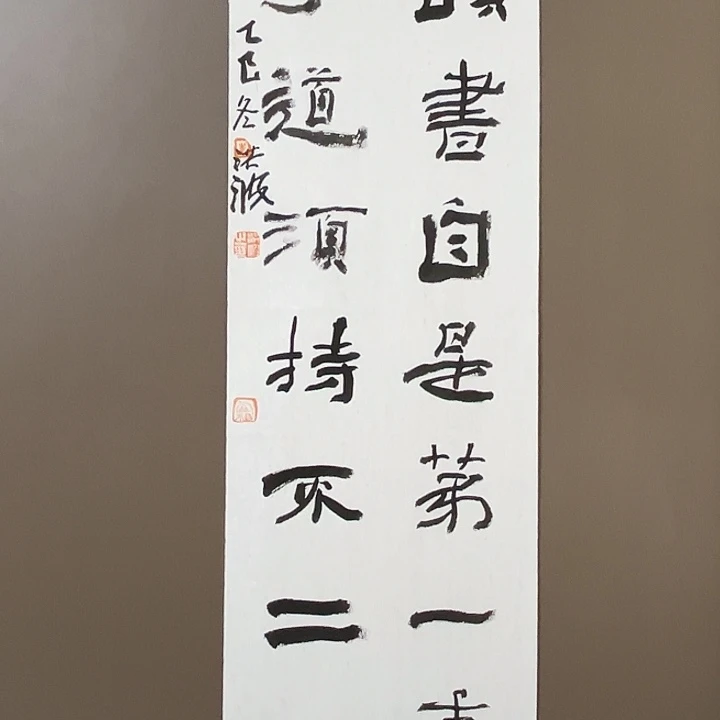 書自是第一
道須持不二
乙巳冬
波